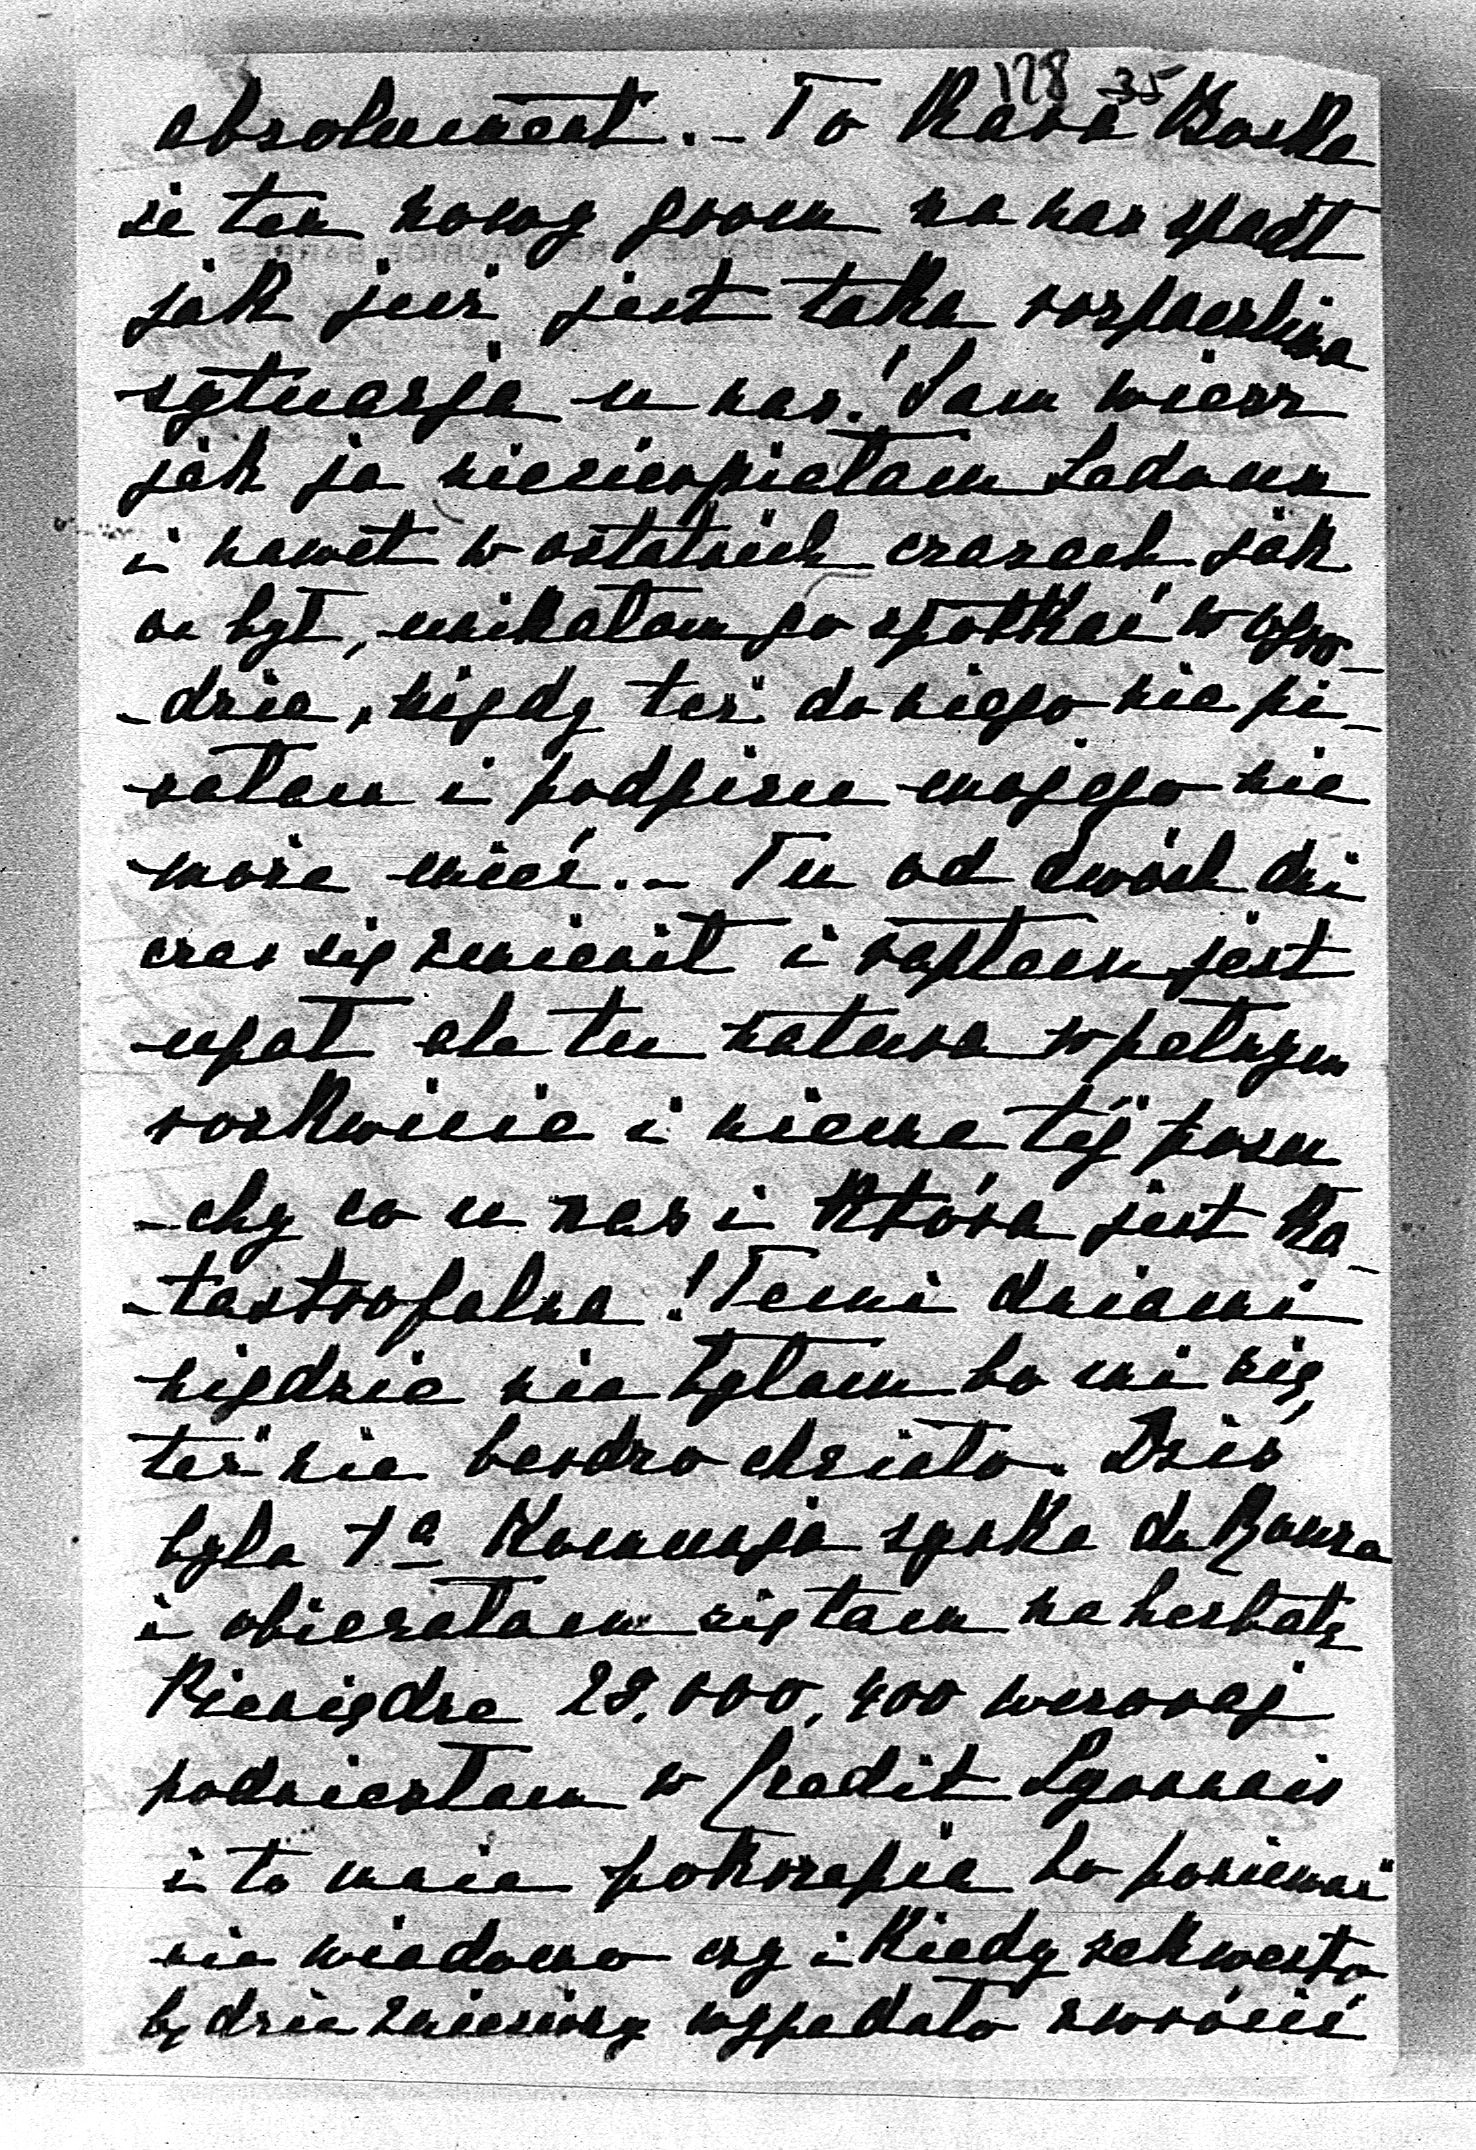 128 35
absolument. – To kara Boska
że ten nowy grom na nas spadł
jak już jest taka rozpaczliwa
sytuacja u nas! Sam wiesz
jak ja niecierpiałam
i nawet w ostatnich czasach jak
on był, unikałam go spotkać w ogro-
-dzie, nigdy też do niego nie pi-
sałam i podpisu mojego nie
może mieć. – Tu od dwóch dni
czas się zmienił i raptem jest
upał ale tu natura w pełnym
rozkwicie i niema téj posu-
-chy co u nas i która jest ka-
-tastrofalna! Temi dniami
nigdzie nie byłam bo mi się
też nie bardzo chciało. Dziś
była 1ª Kommunja synka
i wbierałam się tam na herbatę
Pieniądze 28.000,400 wczoraj
podniosłam w Credit Lyonnais
i to mnie pokrzepia bo ponieważ
nie wiadomo czy i kiedy sekwestr
będzie zniesiony wypadało zwrócić